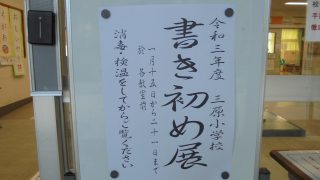 令和三年度 三原小学校
書き初め展
一月十五日から二十一日まで
於 各教室前
消毒・検温をしてからご覧ください